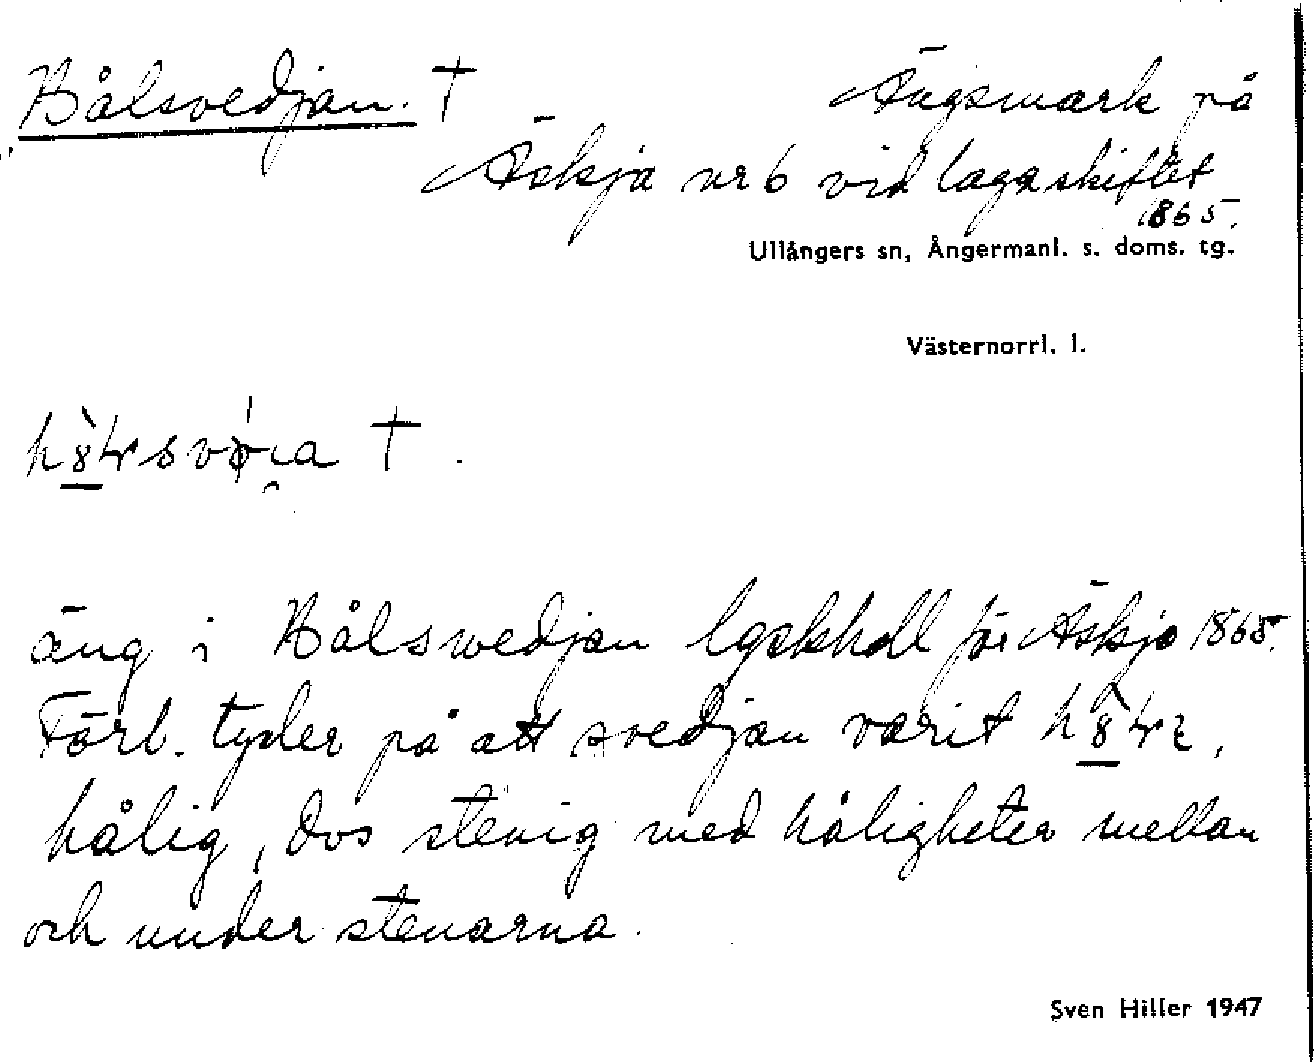 Hålsvedjan. †
Ängsmark på
Äskja nr 6 vid laga skiftet
1865.
Ullångers sn, Ångermanl. s. doms. tg.
Västernorrl. l.
†.
äng i Hålswedjan lgskholl för Äskjo 1865.
Förb. tyder på att svedjan varit
hålig, dvs stenig med håligheter mellan
och under stenarna.
Sven Hiller 1947